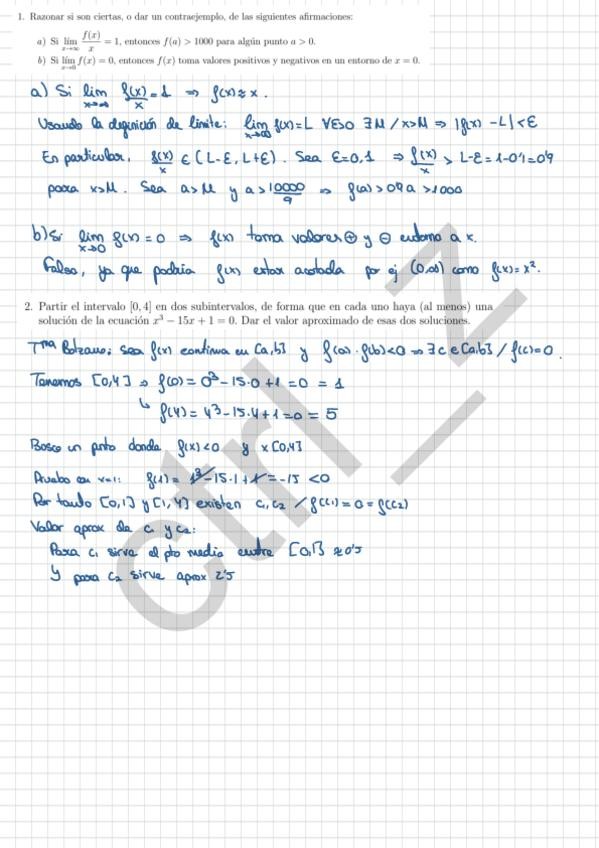 1. Razonar si son ciertas, o dar un contraejemplo, de las siguientes afirmaciones:
a) Si lim_{x→∞} f(x)/x = 1, entonces f(a) > 1000 para algún punto a > 0.
b) Si lim_{x→0} f(x) = 0, entonces f(x) toma valores positivos y negativos en un entorno de x = 0.
a) Si lim_{x→∞} f(x)/x = 1 ⇒ f(x) ≈ x.
Usando la definición de límite: lim_{x→∞} f(x) = L ∀ε>0 ∃M / x>M ⇒ |f(x) - L| < ε
En particular, f(x)/x ∈ (L-ε, L+ε). Sea ε=0,1 ⇒ f(x)/x > L-ε = 1-0'1 = 0'9
para x>M. Sea a>M y a > 10000/9 ⇒ f(a) > 0'9 a > 1000
b) Si lim_{x→0} f(x) = 0 ⇒ f(x) toma valores ⊕ y ⊖ entorno a x.
Falso, ya que podría f(x) estar acotada por ej (0,∞) como f(x) = x².
2. Partir el intervalo [0, 4] en dos subintervalos, de forma que en cada uno haya (al menos) una
solución de la ecuación x³ − 15x + 1 = 0. Dar el valor aproximado de esas dos soluciones.
Tma Bolzano: sea f(x) continua en [a,b] y f(a)·f(b)<0 ⇒ ∃ c ∈ [a,b] / f(c)=0.
Tenemos [0,4] ⇒ f(0) = 0³ - 15·0 + 1 = 0 = 1
↳ f(4) = 4³ - 15·4 + 1 = 0 = 5
Busco un pnto donde f(x)<0 y x [0,4]
Pruebo en x=1: f(1) = 1³ - 15·1 + 1 = -15 < 0
Por tanto [0,1] y [1,4] existen c₁, c₂ / f(c₁) = 0 = f(c₂)
Valor aprox de c₁ y c₂:
Para c₁ sirve el pto medio entre [0,1] ≈ 0'5
Y para c₂ sirve aprox 2'5
ctrl_z